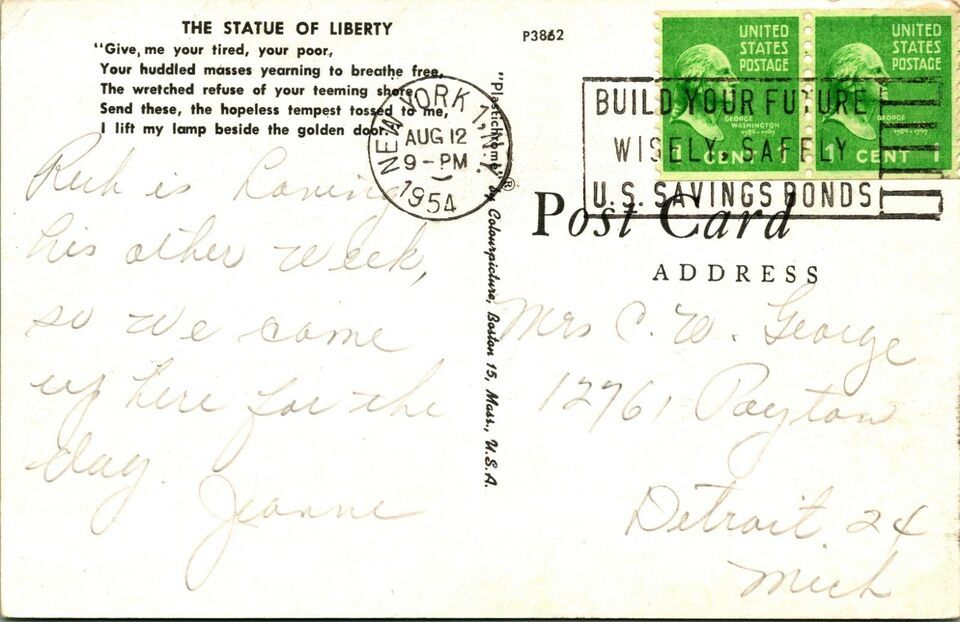 THE STATUE OF LIBERTY
"Give, me your tired, your poor,
Your huddled masses yearning to breathe free,
The wretched refuse of your teeming shore,
Send these, the hopeless tempest tossed to me,
I lift my lamp beside the golden door.
P3862
NEW YORK 1, N.Y.
AUG 12
9 - PM
1954
BUILD YOUR FUTURE
WISELY, SAFELY
U.S. SAVINGS BONDS
UNITED
STATES
POSTAGE
GEORGE
WASHINGTON
1789-1797
1 CENT 1
UNITED
STATES
POSTAGE
GEORGE
1789-1797
1 CENT 1
"Plastichrome" ® by Colourpicture, Boston 15, Mass., U.S.A.
Post Card
ADDRESS
is having
his other week,
so we came
up here for the
day.
Jeanne
Mrs C. W. George
12761 Payton
Detroit 24
Mich